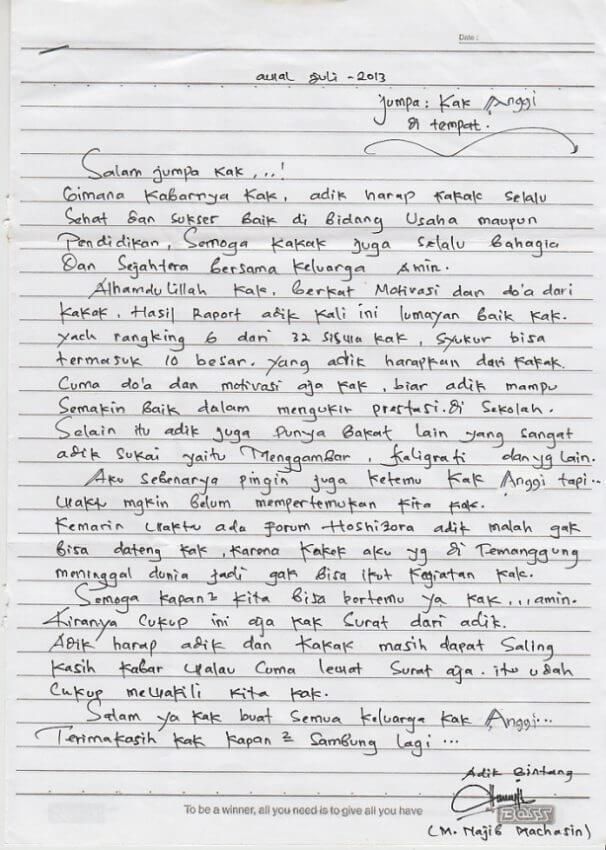 Date :
awal Juli - 2013
Jumpa : Kak Anggi
di tempat.
Salam jumpa kak, ...!
Gimana kabarnya kak, adik harap kakak selalu
Sehat dan sukses baik di bidang Usaha maupun
Pendidikan, Semoga kakak juga selalu bahagia
Dan Sejahtera bersama keluarga amin.
Alhamdulillah kak, berkat Motivasi dan do'a dari
kakak, Hasil Raport adik kali ini lumayan baik kak.
yach rangking 6 dari 32 siswa kak, syukur bisa
termasuk 10 besar. yang adik harapkan dari kakak.
Cuma do'a dan motivasi aja kak, biar adik mampu
Semakin baik dalam mengukir prestasi di sekolah.
Selain itu adik juga punya bakat lain yang sangat
adik sukai yaitu Menggambar, kaligrafi dan yg lain.
Aku sebenarya pingin juga ketemu kak Anggi tapi..
waktu mgkin belum mempertemukan kita kak.
Kemarin waktu ada forum Hoshizora adik malah gak
bisa dateng kak, karena kakek aku yg di Temanggung
meninggal dunia jadi gak bisa ikut kegiatan kak.
Semoga kapan² kita bisa bertemu ya kak,...amin.
Kiranya cukup ini aja kak surat dari adik.
Adik harap adik dan kakak masih dapat saling
kasih kabar walau cuma lewat surat aja. itu udah
cukup mewakili kita kak.
Salam ya kak buat semua keluarga kak Anggi...
Terimakasih kak kapan² sambung lagi ...
Adik Bintang
To be a winner, all you need is to give all you have
BOSS
(M. Najib Machasin)